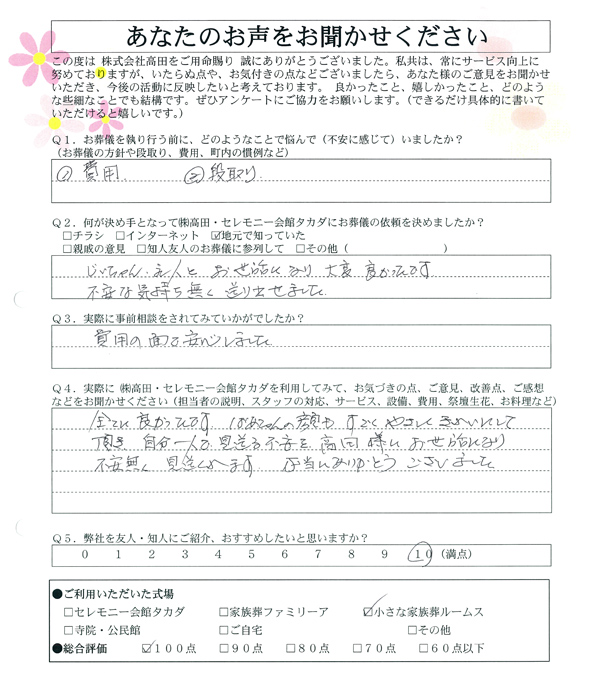 あなたのお声をお聞かせください
この度は 株式会社高田をご用命賜り 誠にありがとうございました。私共は、常にサービス向上に
努めておりますが、いたらぬ点や、お気付きの点などございましたら、あなた様のご意見をお聞かせ
いただき、今後の活動に反映したいと考えております。 良かったこと、嬉しかったこと、どのよう
な些細なことでも結構です。ぜひアンケートにご協力をお願いします。（できるだけ具体的に書いて
いただけると嬉しいです。）
Ｑ１．お葬儀を執り行う前に、どのようなことで悩んで（不安に感じて）いましたか？
（お葬儀の方針や段取り、費用、町内の慣例など）
① 費用 ② 段取り
Ｑ２．何が決め手となって㈱高田・セレモニー会館タカダにお葬儀の依頼を決めましたか？
□チラシ □インターネット ☑地元で知っていた
□親戚の意見 □知人友人のお葬儀に参列して □その他（ ）
じいちゃん・主人と お世話になり 大変 良かったです
不安な気持ち無く 送り出せました
Ｑ３．実際に事前相談をされてみていかがでしたか？
費用の面で安心しました
Ｑ４．実際に ㈱高田・セレモニー会館タカダを利用してみて、お気づきの点、ご意見、改善点、ご感想
などをお聞かせください（担当者の説明、スタッフの対応、サービス、設備、費用、祭壇生花、お料理など）
全てに良かったです ばあちゃんの顔も すごく やさしく きれいにして
頂き 自分一人で見送る不安を 高田様に お世話になり
不安無く 見送くれます 本当にありがとう ございました
Ｑ５．弊社を友人・知人にご紹介、おすすめしたいと思いますか？
０ １ ２ ３ ４ ５ ６ ７ ８ ９ １０（満点）
●ご利用いただいた式場
□セレモニー会館タカダ □家族葬ファミリーア ☑小さな家族葬ルームス
□寺院・公民館 □ご自宅 □その他
●総合評価 ☑１００点 □９０点 □８０点 □７０点 □６０点以下